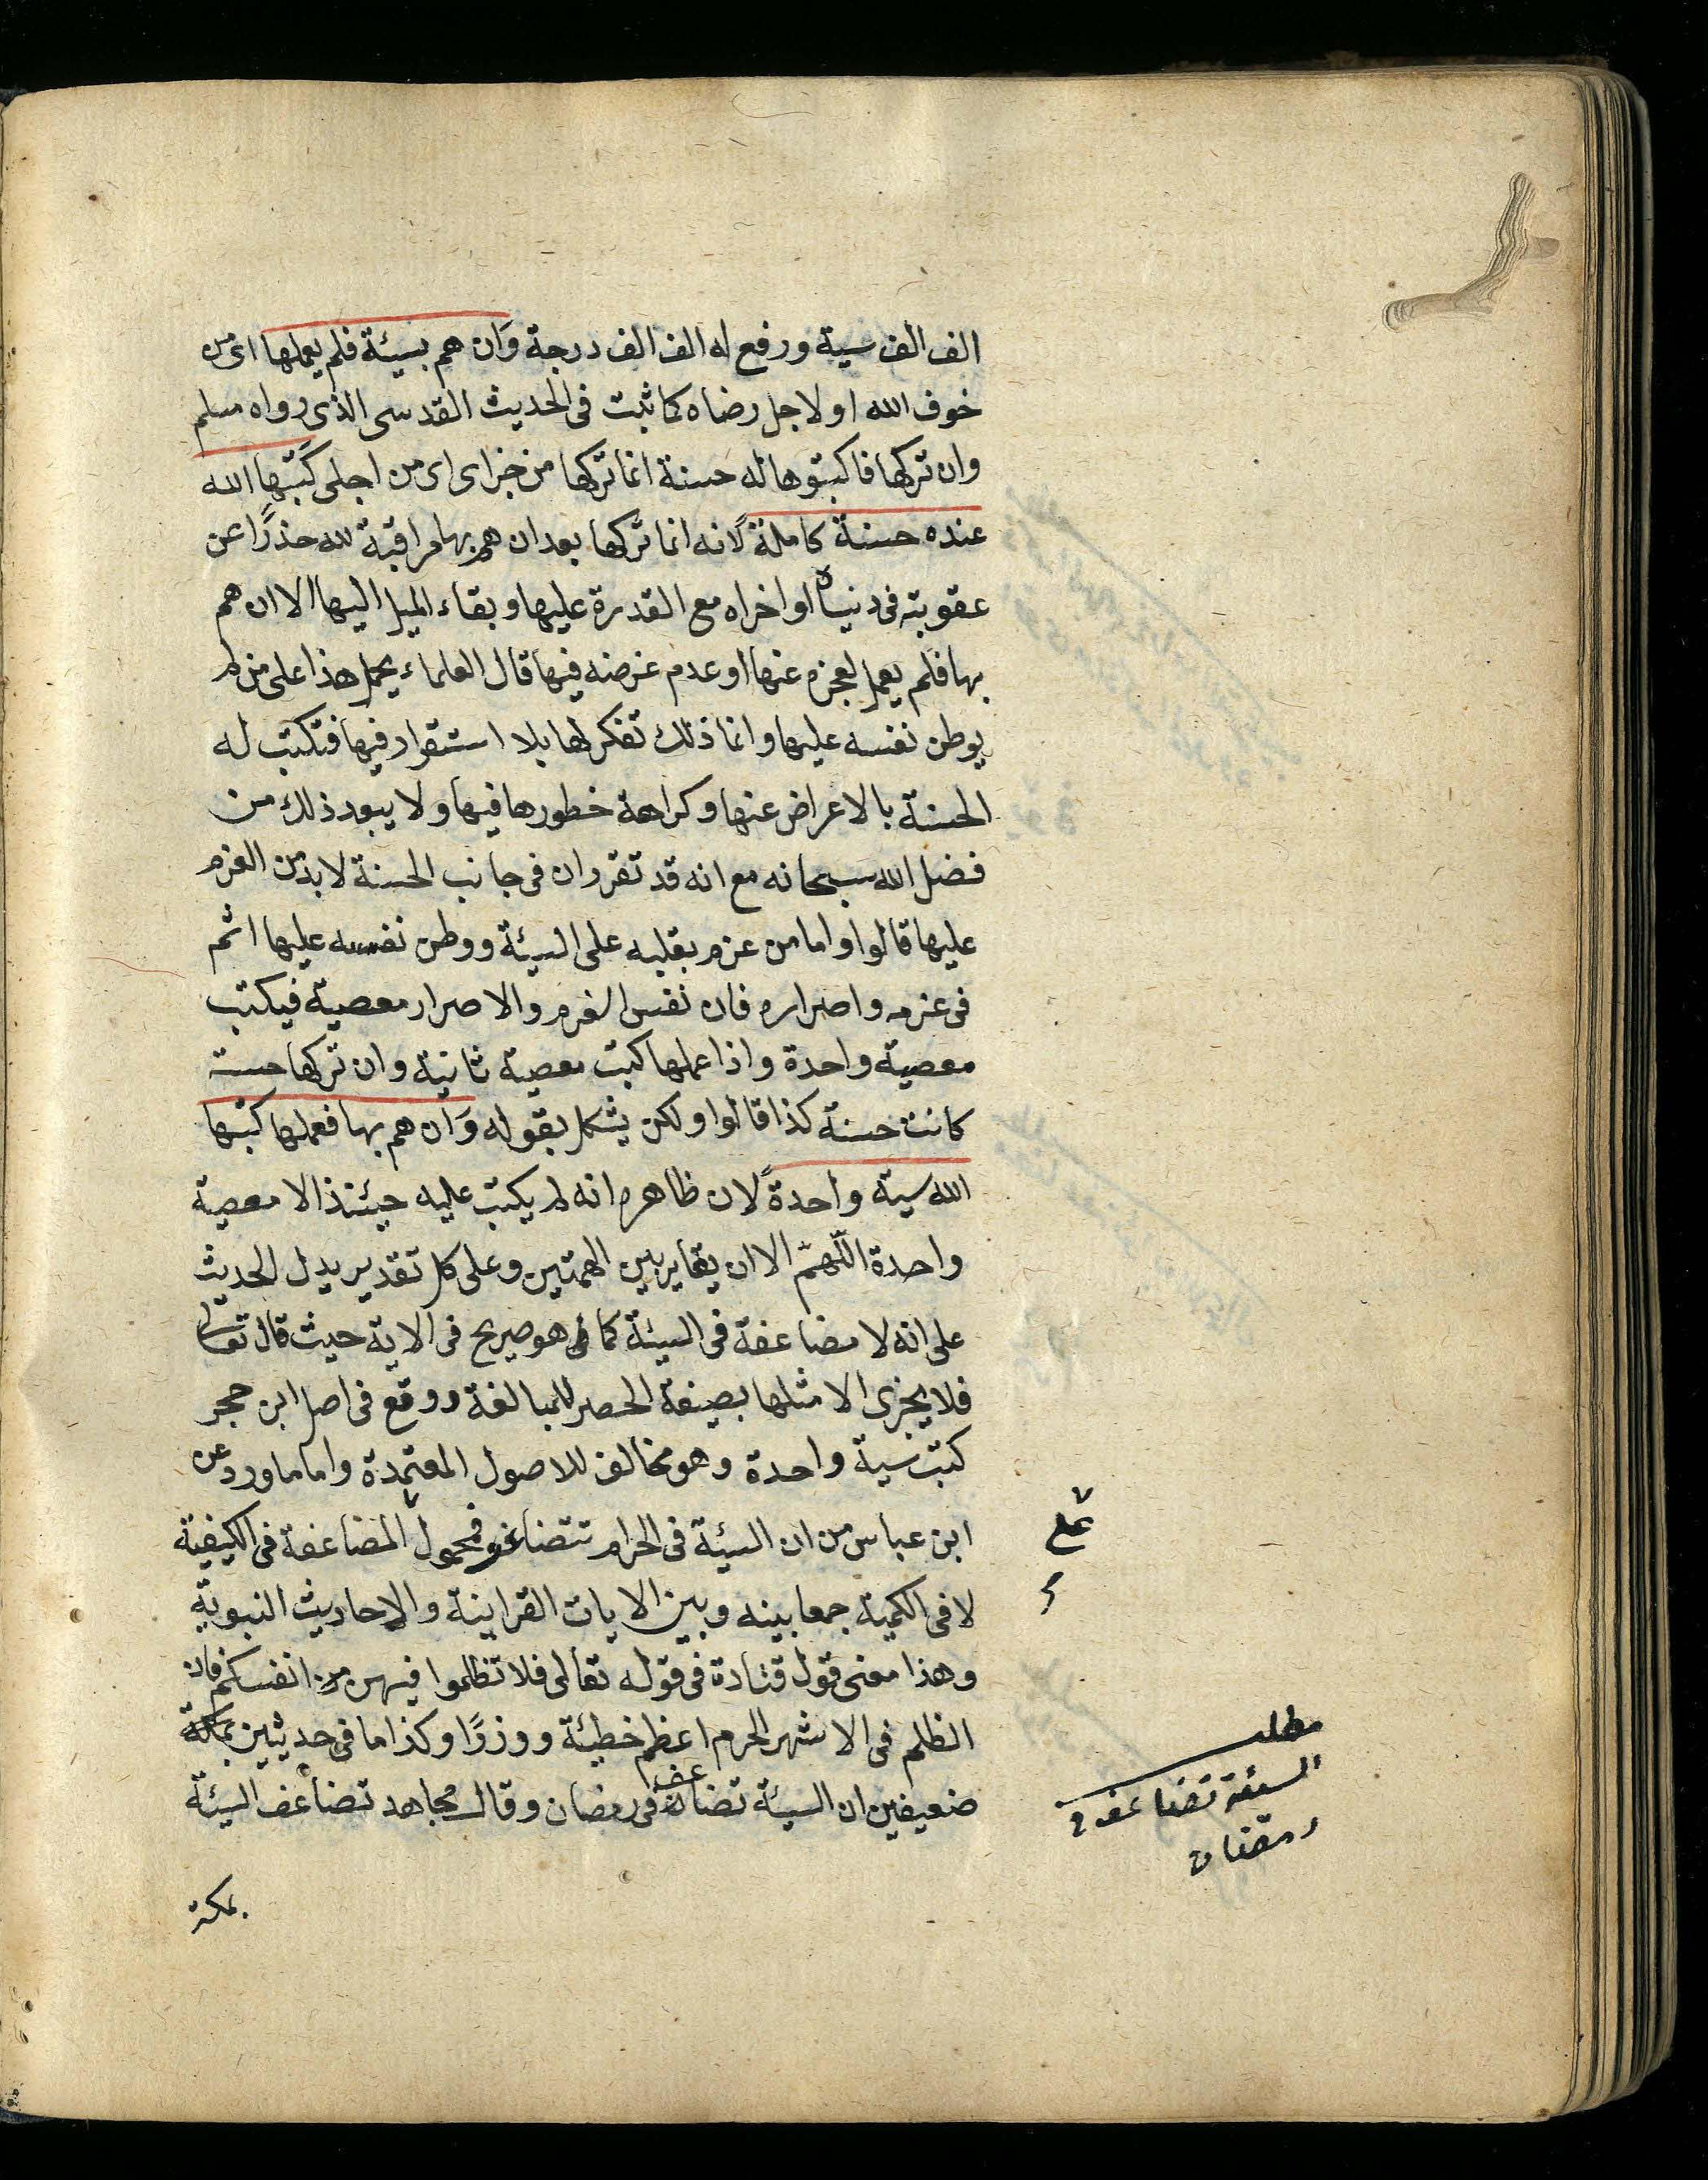 الف الف سية ورفع له الف الف درجة وَان هم بسيئة فلم يعملها اى من
خوف الله او لاجل رضاه كما ثبت فى الحديث القدسى الذى رواه مسلم
وان تركها فاكبتوها له حسنة انما تركها من جزاى اى من اجلى كَتبَها الله
عنده حسنة كاملة لانه انما تركها بعد ان هم بها مراقبة لله حذرًا عن
عقوبته فى دنياه او اخراه مع القدرة عليها وبقاء الميل اليها الا ان هم
بها فلم يعمل لعجزه عنها او عدم غرضه فيها قال العلماء يحمل هذا على من لم
يوطن نفسه عليها وانما ذلك تفكر لها بلا استقرار فيها فتكتب له
الحسنة بالاعراض عنها وكراهة خطورها فيها ولا يبعد ذلك من
فضل الله سبحانه مع انه قد تقرر ان فى جانب الحسنة لا بد من العزم
عليها قالوا واما من عزم بقلبه على السيئة ووطن نفسه عليها اثم
فى عزمه واصراره فان نفس العزم والاصرار معصية فيكتب
معصية واحدة واذا عملها كتبت معصية ثانية وان تركها حسنة
كانت حسنة كذا قالوا ولكن يشكل بقوله وَان هم بها فعملها كتبها
الله سية واحدةً لان ظاهره انه لم يكتب عليه حيئنذ الا معصية
واحدة اللّهمّ الا ان يغاير بين الهمتين وعلى كل تقدير يدل الحديث
على انه لا مضاعفة فى السيئة كما هو صريح فى الاية حيث قال تعالى
فلا يجزى الا مثلها بصيغة الحصر للمبالغة ووقع فى اصل ابن حجر
كتبت سية واحدة وهو مخالف للاصول المعتمدة واما ما ورد عن
ابن عباس من ان السيئة فى الحرام تتضاعف فمحمول المضاعفة فى الكيفية
على
لا فى الكمية جمعا بينه وبين الايات القراينة والاحاديث النبوية
وهذا معنى قول قتادة فى قوله تعالى فلا تظلموا فيهن من انفسكم فان
الظلم فى الاشهر الحرم اعظم خطيئة ووزرًا وكذا ما فى حديثين بمكة
ضعيفين ان السيئة تضاعف فى رمضان وقال مجاهد تضاعف السيئة
مطلب
السيئة تضاعف فى
رمضان
بمكة